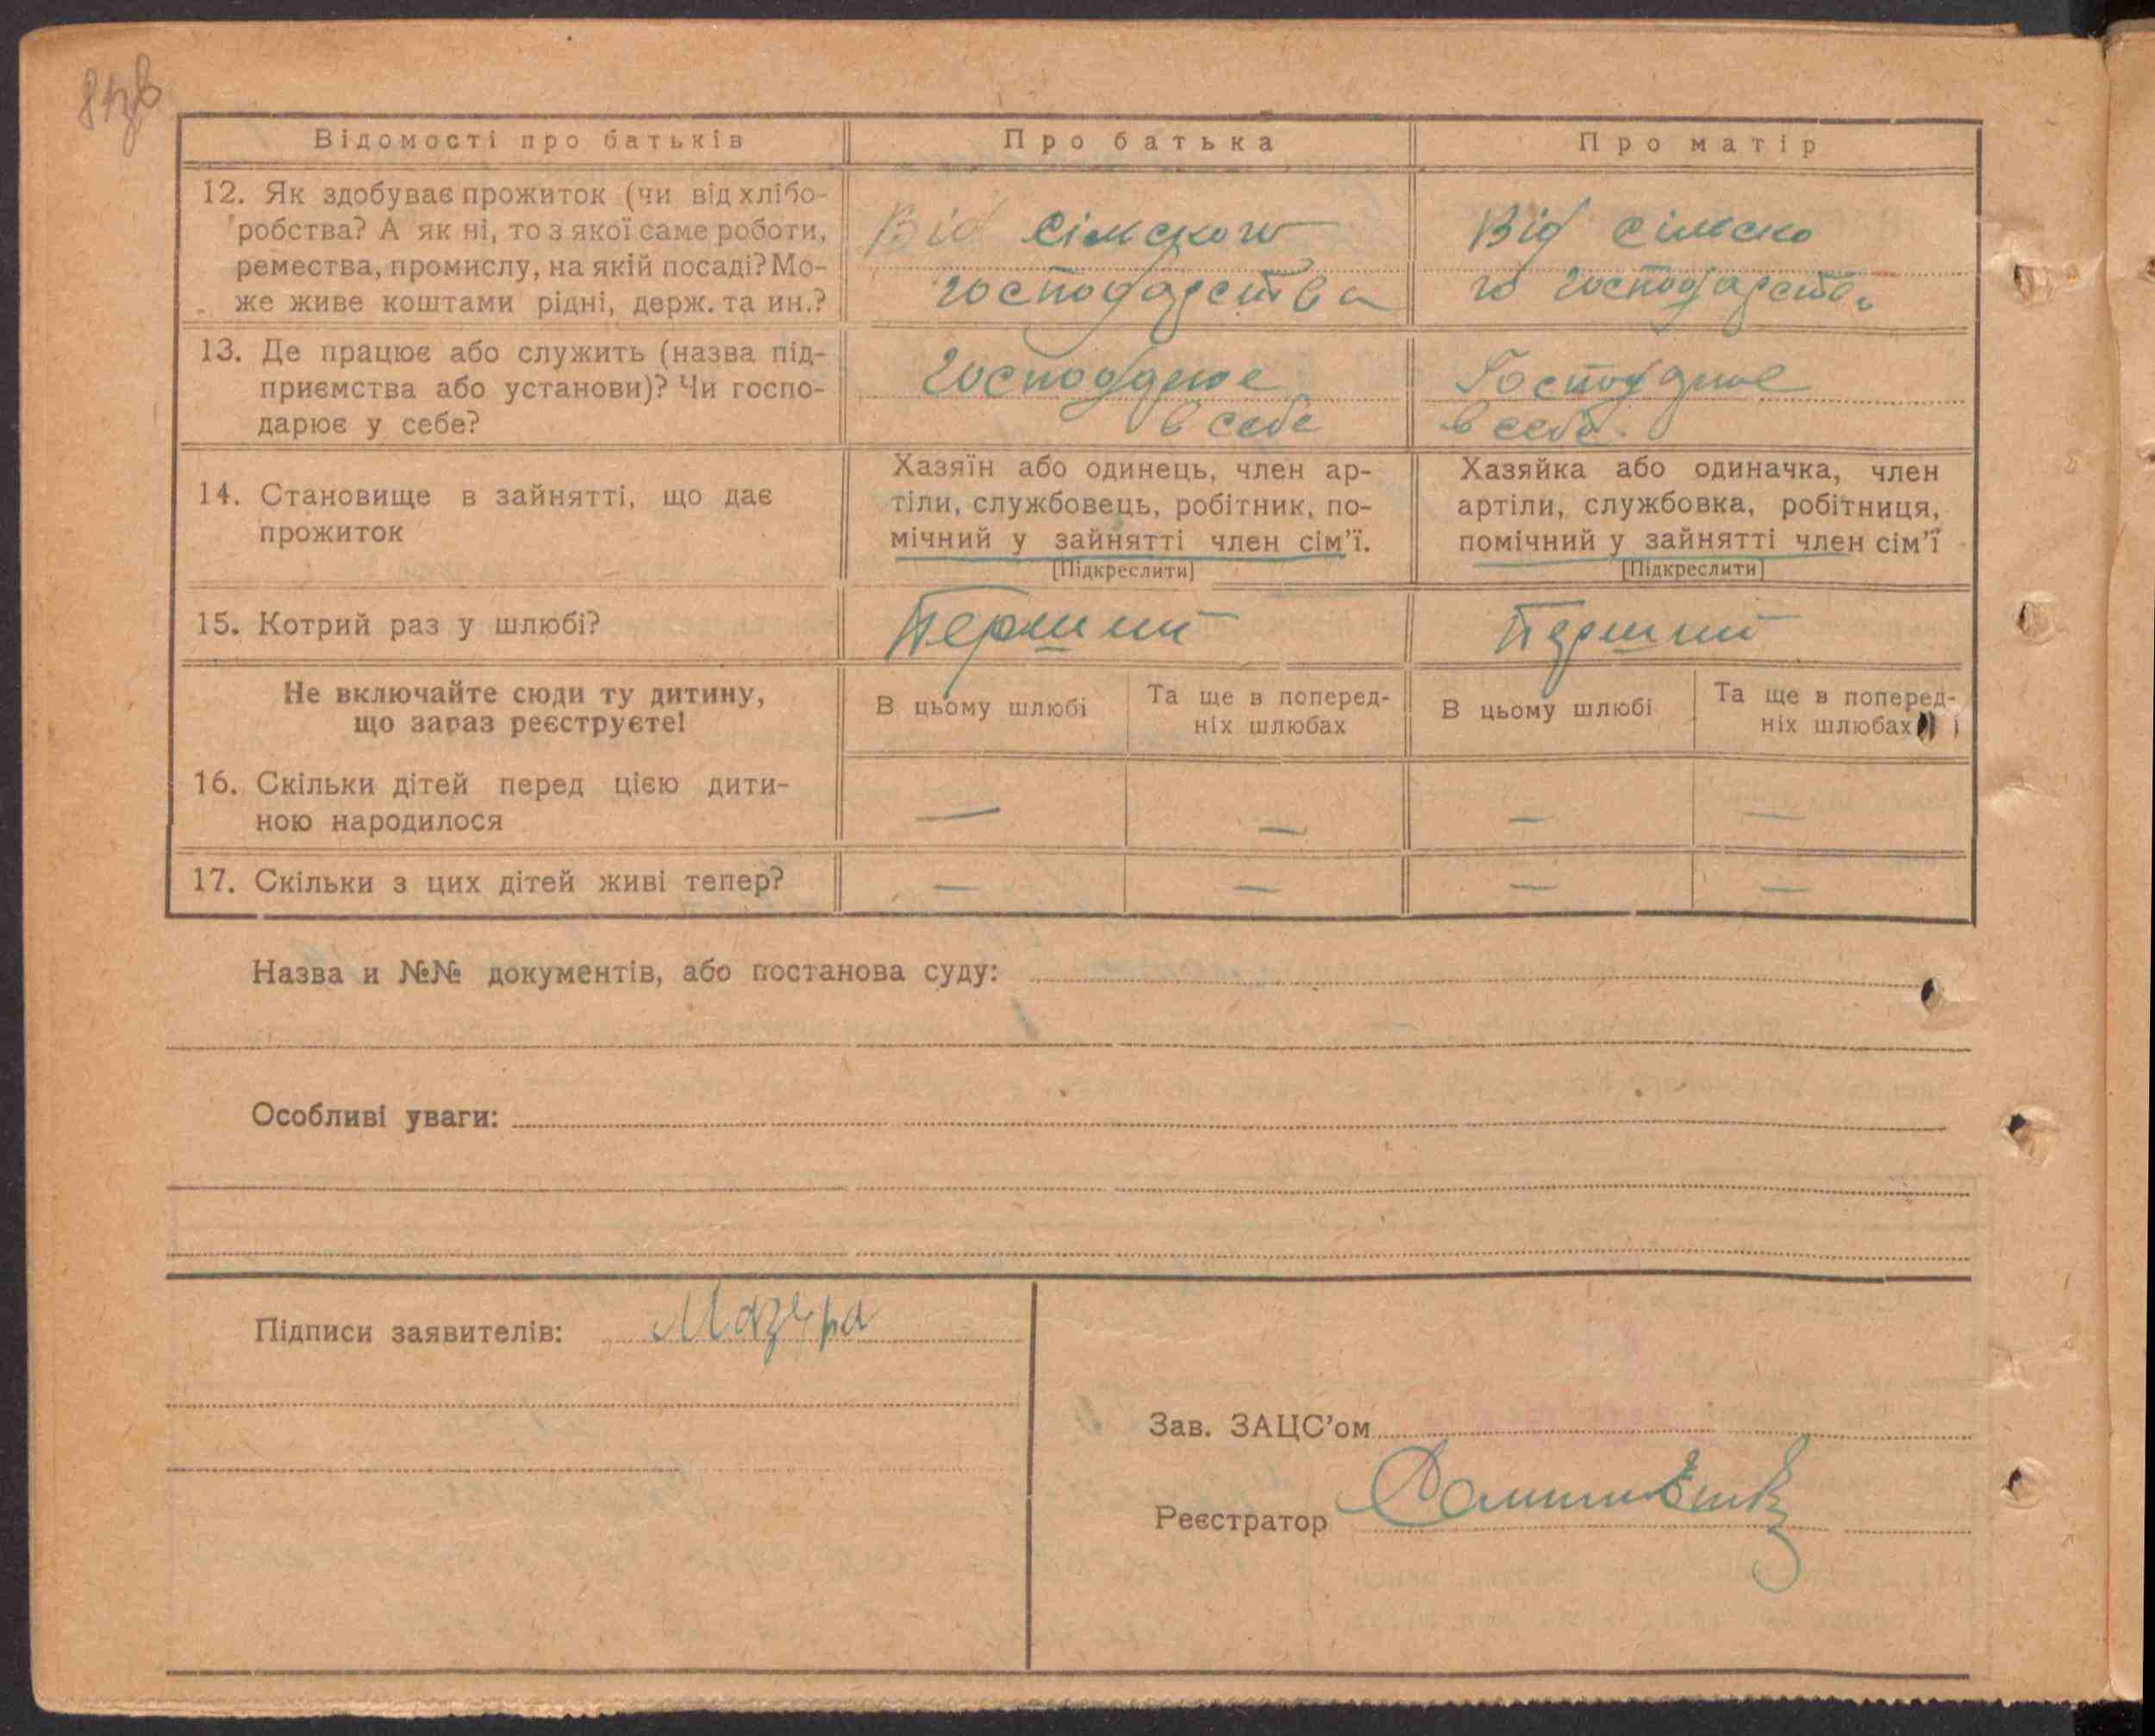 Відомості про батьків
Про батька
Про матір
12. Як здобуває прожиток (чи від хлібо-
робства? А як ні, то з якої саме роботи,
ремества, промислу, на якій посаді? Мо-
же живе коштами рідні, держ. та ин.?
Від сільского
господарства
Від сільско
го господарства
13. Де працює або служить (назва під-
приємства або установи)? Чи госпо-
дарює у себе?
Господарює
в себе
Господарює
в себе.
14. Становище в зайнятті, що дає
прожиток
Хазяїн або одинець, член ар-
тіли, службовець, робітник, по-
мічний у зайнятті член сім'ї.
[Підкреслити]
Хазяйка або одиначка, член
артіли, службовка, робітниця,
помічний у зайнятті член сім'ї
[Підкреслити]
15. Котрий раз у шлюбі?
Перший
Перший
Не включайте сюди ту дитину,
що зараз реєструєте!
В цьому шлюбі
Та ще в поперед-
ніх шлюбах
В цьому шлюбі
Та ще в поперед-
ніх шлюбах
16. Скільки дітей перед цією дити-
ною народилося
— — — —
17. Скільки з цих дітей живі тепер?
— — — —
Назва и №№ документів, або постанова суду:
Особливі уваги:
Підписи заявителів: Мазура
Зав. ЗАЦС'ом
Реєстратор